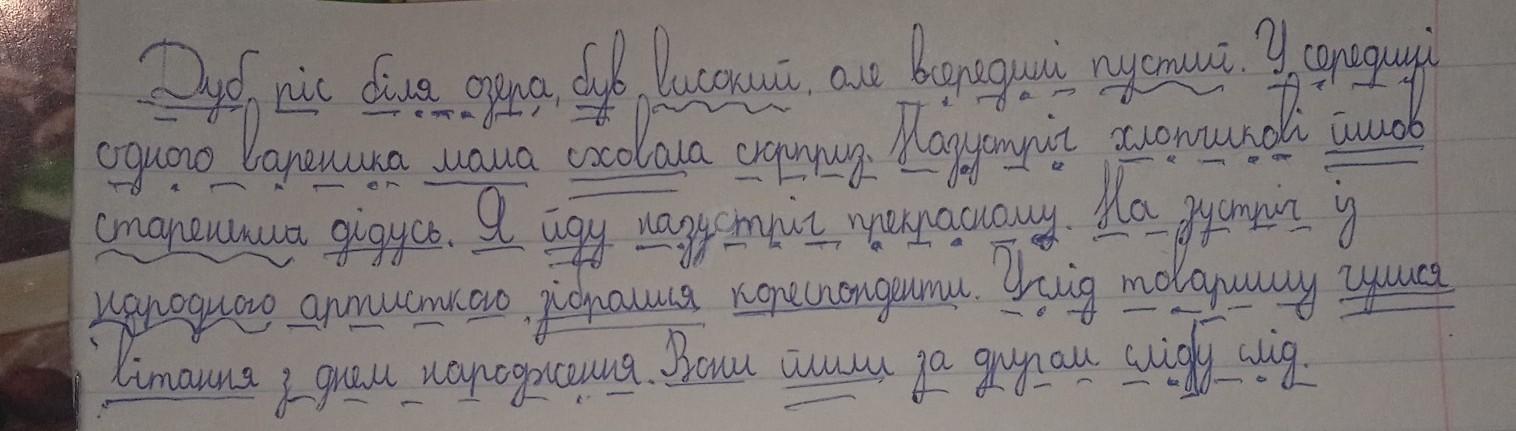 Дуб ріс біля озера, був високий, але всередині пустий. У середині
одного вареника мама сховала сюрприз. Назустріч хлопчикові йшов
старенький дідусь. Я йду назустріч прекрасному. На зустріч із
народною артисткою зібралися кореспонденти. Услід товаришу чулися
вітання з днем народження. Вони йшли за другом слід у слід.